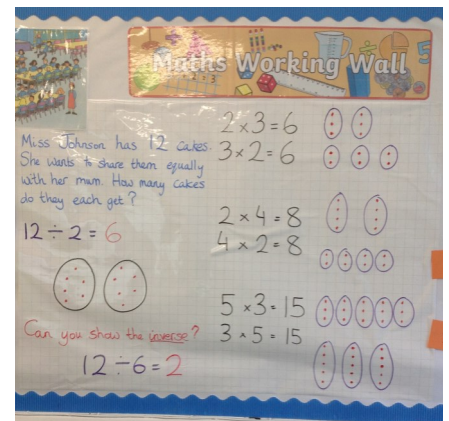 Maths Working Wall
Miss Johnson has 12 cakes.
She wants to share them equally
with her mum. How many cakes
do they each get?
12 ÷ 2 = 6
Can you show the inverse?
12 ÷ 6 = 2
2 × 3 = 6
3 × 2 = 6
2 × 4 = 8
4 × 2 = 8
5 × 3 = 15
3 × 5 = 15